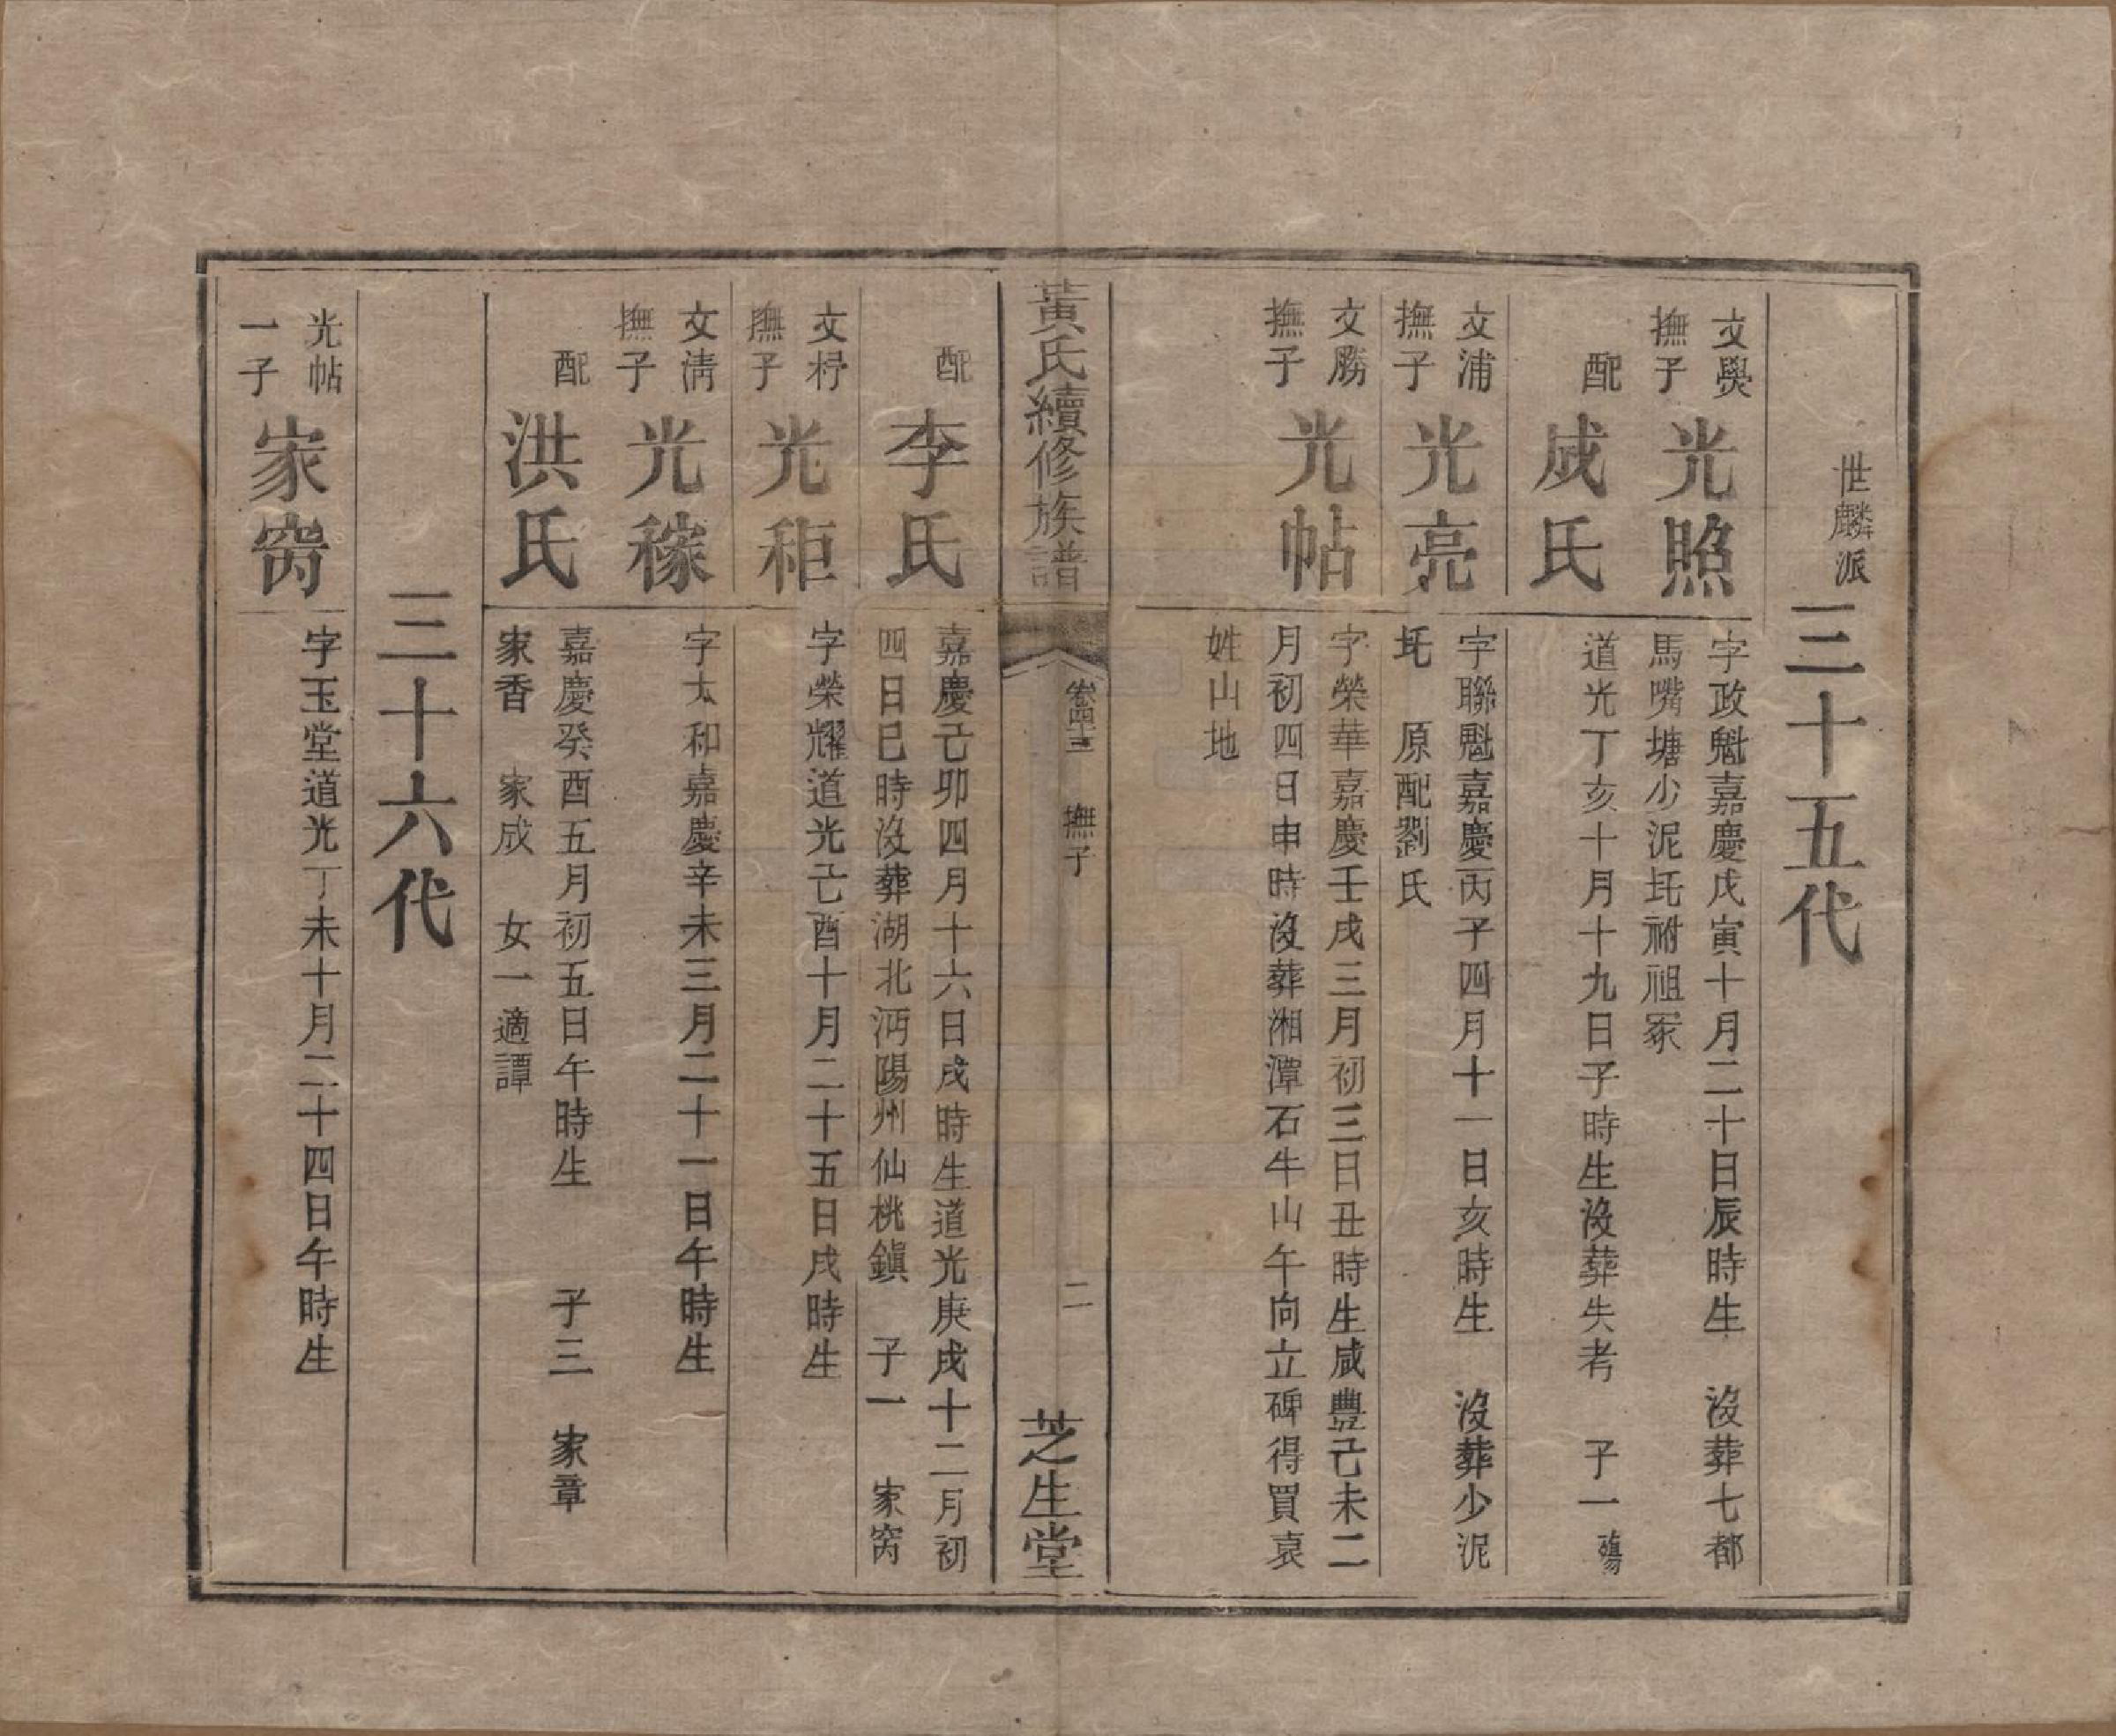 世麟派
三十五代
文奧
撫子
光照
字政魁嘉慶戊寅十月二十日辰時生　沒葬七都
馬嘴塘少泥圫祔祖冢
配
成氏
道光丁亥十月十九日子時生沒葬失考　子一殤
文浦
撫子
光亮
字聯魁嘉慶丙子四月十一日亥時生　沒葬少泥
圫　原配劉氏
文勝
撫子
光帖
字榮華嘉慶壬戌三月初三日丑時生咸豐己未二
月初四日申時沒葬湘潭石牛山午向立碑得買袁
姓山地
黃氏續修族譜
卷四十三　撫子
二
芝生堂
配
李氏
嘉慶己卯四月十六日戌時生道光庚戌十二月初
四日巳時沒葬湖北沔陽州仙桃鎮　子一　家窝
文杼
撫子
光秬
字榮耀道光己酉十月二十五日戌時生
文清
撫子
光稼
字太和嘉慶辛未三月二十一日午時生
配
洪氏
嘉慶癸酉五月初五日午時生　子三　家章
家香　家成　女一適譚
三十六代
光帖
一子
家窝
字玉堂道光丁未十月二十四日午時生